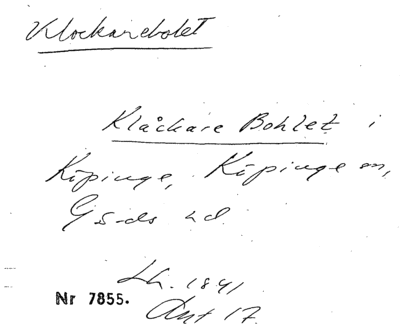 Klockarebolet
Klåckare Bohlet i
Köpinge, Köpinge sn,
Gärds hd
Lh. 1841
Nr 7855.
Akt 17.